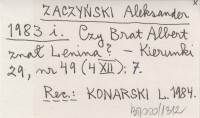 ZACZYŃSKI Aleksander
1983 i. Czy Brat Albert
znał Lenina? – Kierunki
29, nr 49 (4 XII): 7.
Rec.: KONARSKI L. 1984.